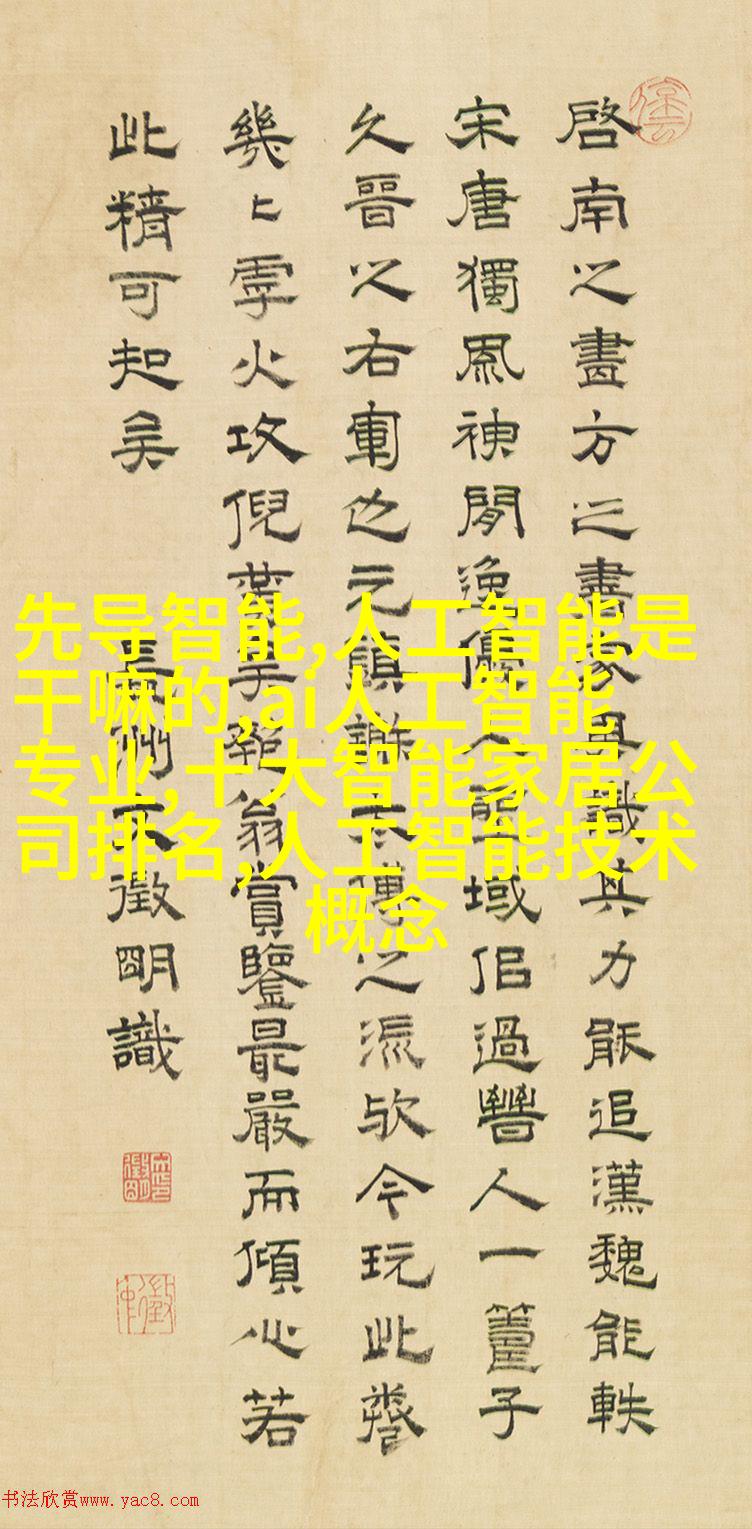 先导智能,人工智能是
干嘛的,ai人工智能
专业,十大智能家居公
司排名,人工智能技术
概念
啓南之畫方之書家具識其力能追漢魏能軼
宋唐獨風神閒逸聖域但過人一籌子
久晉之右軍也元鎮太傅之流歟今玩此卷
幾火攻倪黃翁賞鑒最嚴而傾心若
此精可知矣
長洲文徵明識
书法欣赏www.yac8.com